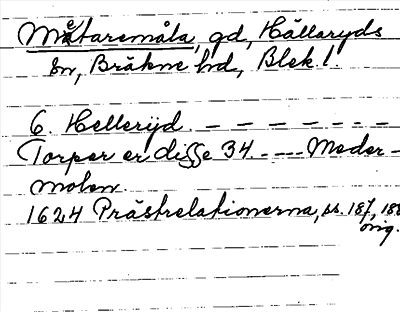 Mätaremåla, gd, Hällaryds
sn, Bräkne hd, Blek l.
6. Hellerijd - - - - - - -
Torper er disse 34 ---- Meder-
molen
1624 Prästrelationerna, ss. 187, 188
orig.